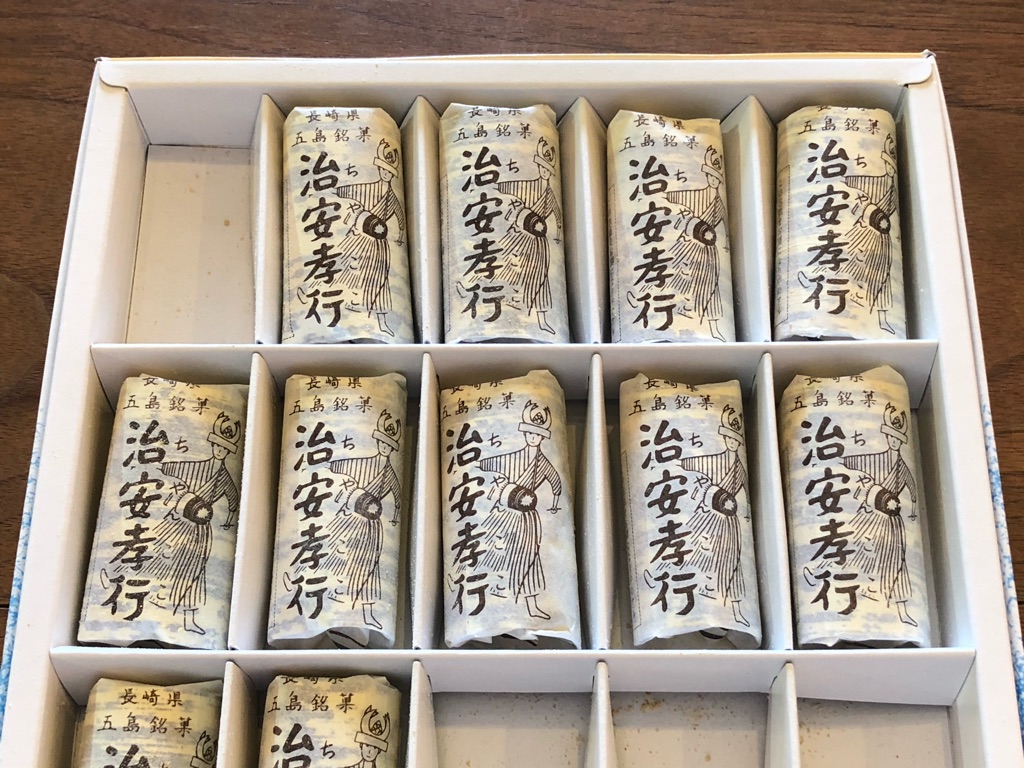 長崎県
五島銘菓
治安孝行
ちゃんここ
長崎県
五島銘菓
治安孝行
ちゃんここ
長崎県
五島銘菓
治安孝行
ちゃんここ
長崎県
五島銘菓
治安孝行
ちゃんここ
長崎県
五島銘菓
治安孝行
ちゃんここ
長崎県
五島銘菓
治安孝行
ちゃんここ
長崎県
五島銘菓
治安孝行
ちゃんここ
長崎県
五島銘菓
治安孝行
ちゃんここ
長崎県
五島銘菓
治安孝行
ちゃんここ
長崎県
五島銘菓
治
ち
長崎県
五島銘菓
治
ち